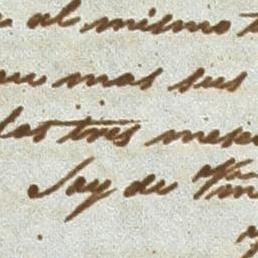 al mismo
mas sus
los tres mese
Soy de